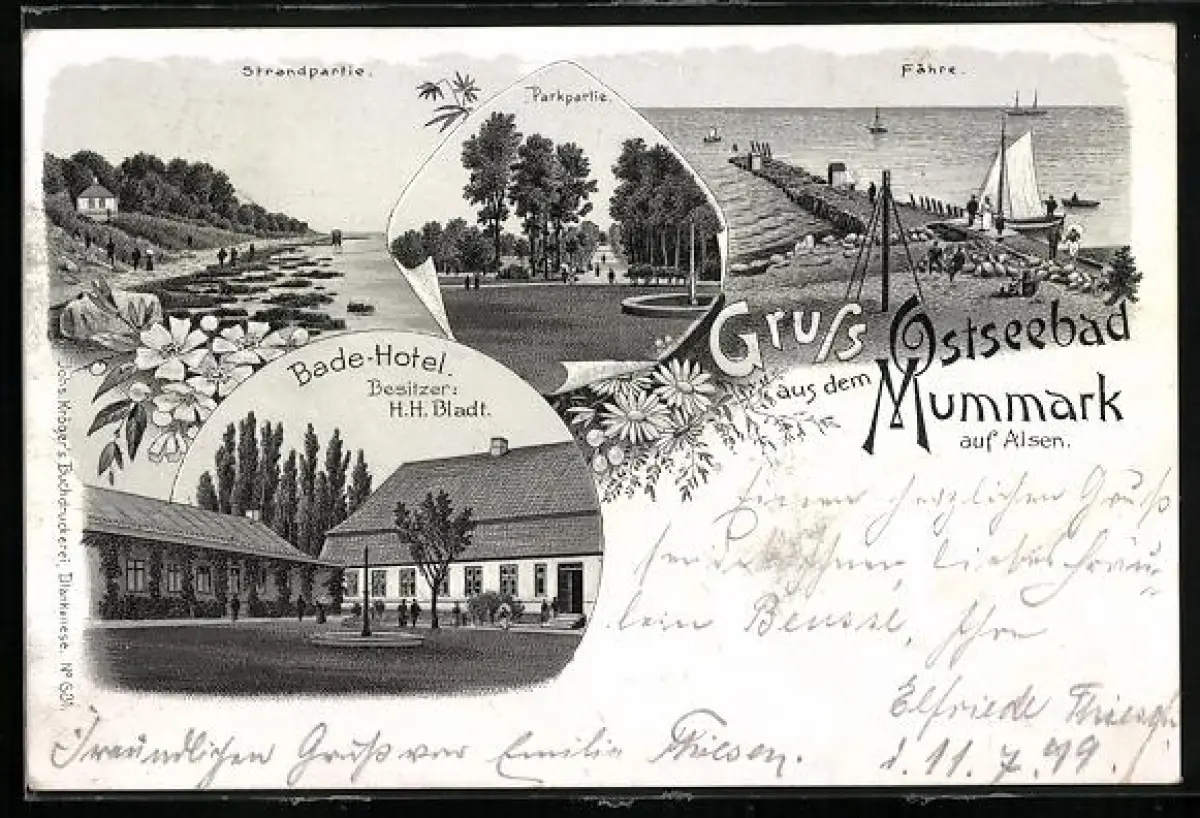 Strandpartie.
Parkpartie.
Fähre.
Gruss
aus dem
Ostseebad
Mummark
auf Alsen.
Bade-Hotel.
Besitzer:
H.H. Bladt.
Johs. Kröger's Buchdruckerei, Blankenese. No
Einen herzlichen Gruß
sendet Ihnen, liebes Fräu-
lein Ihre
Elfriede
d. 11.7.99.
Freundlichen Gruß von Emilie Thiesen.